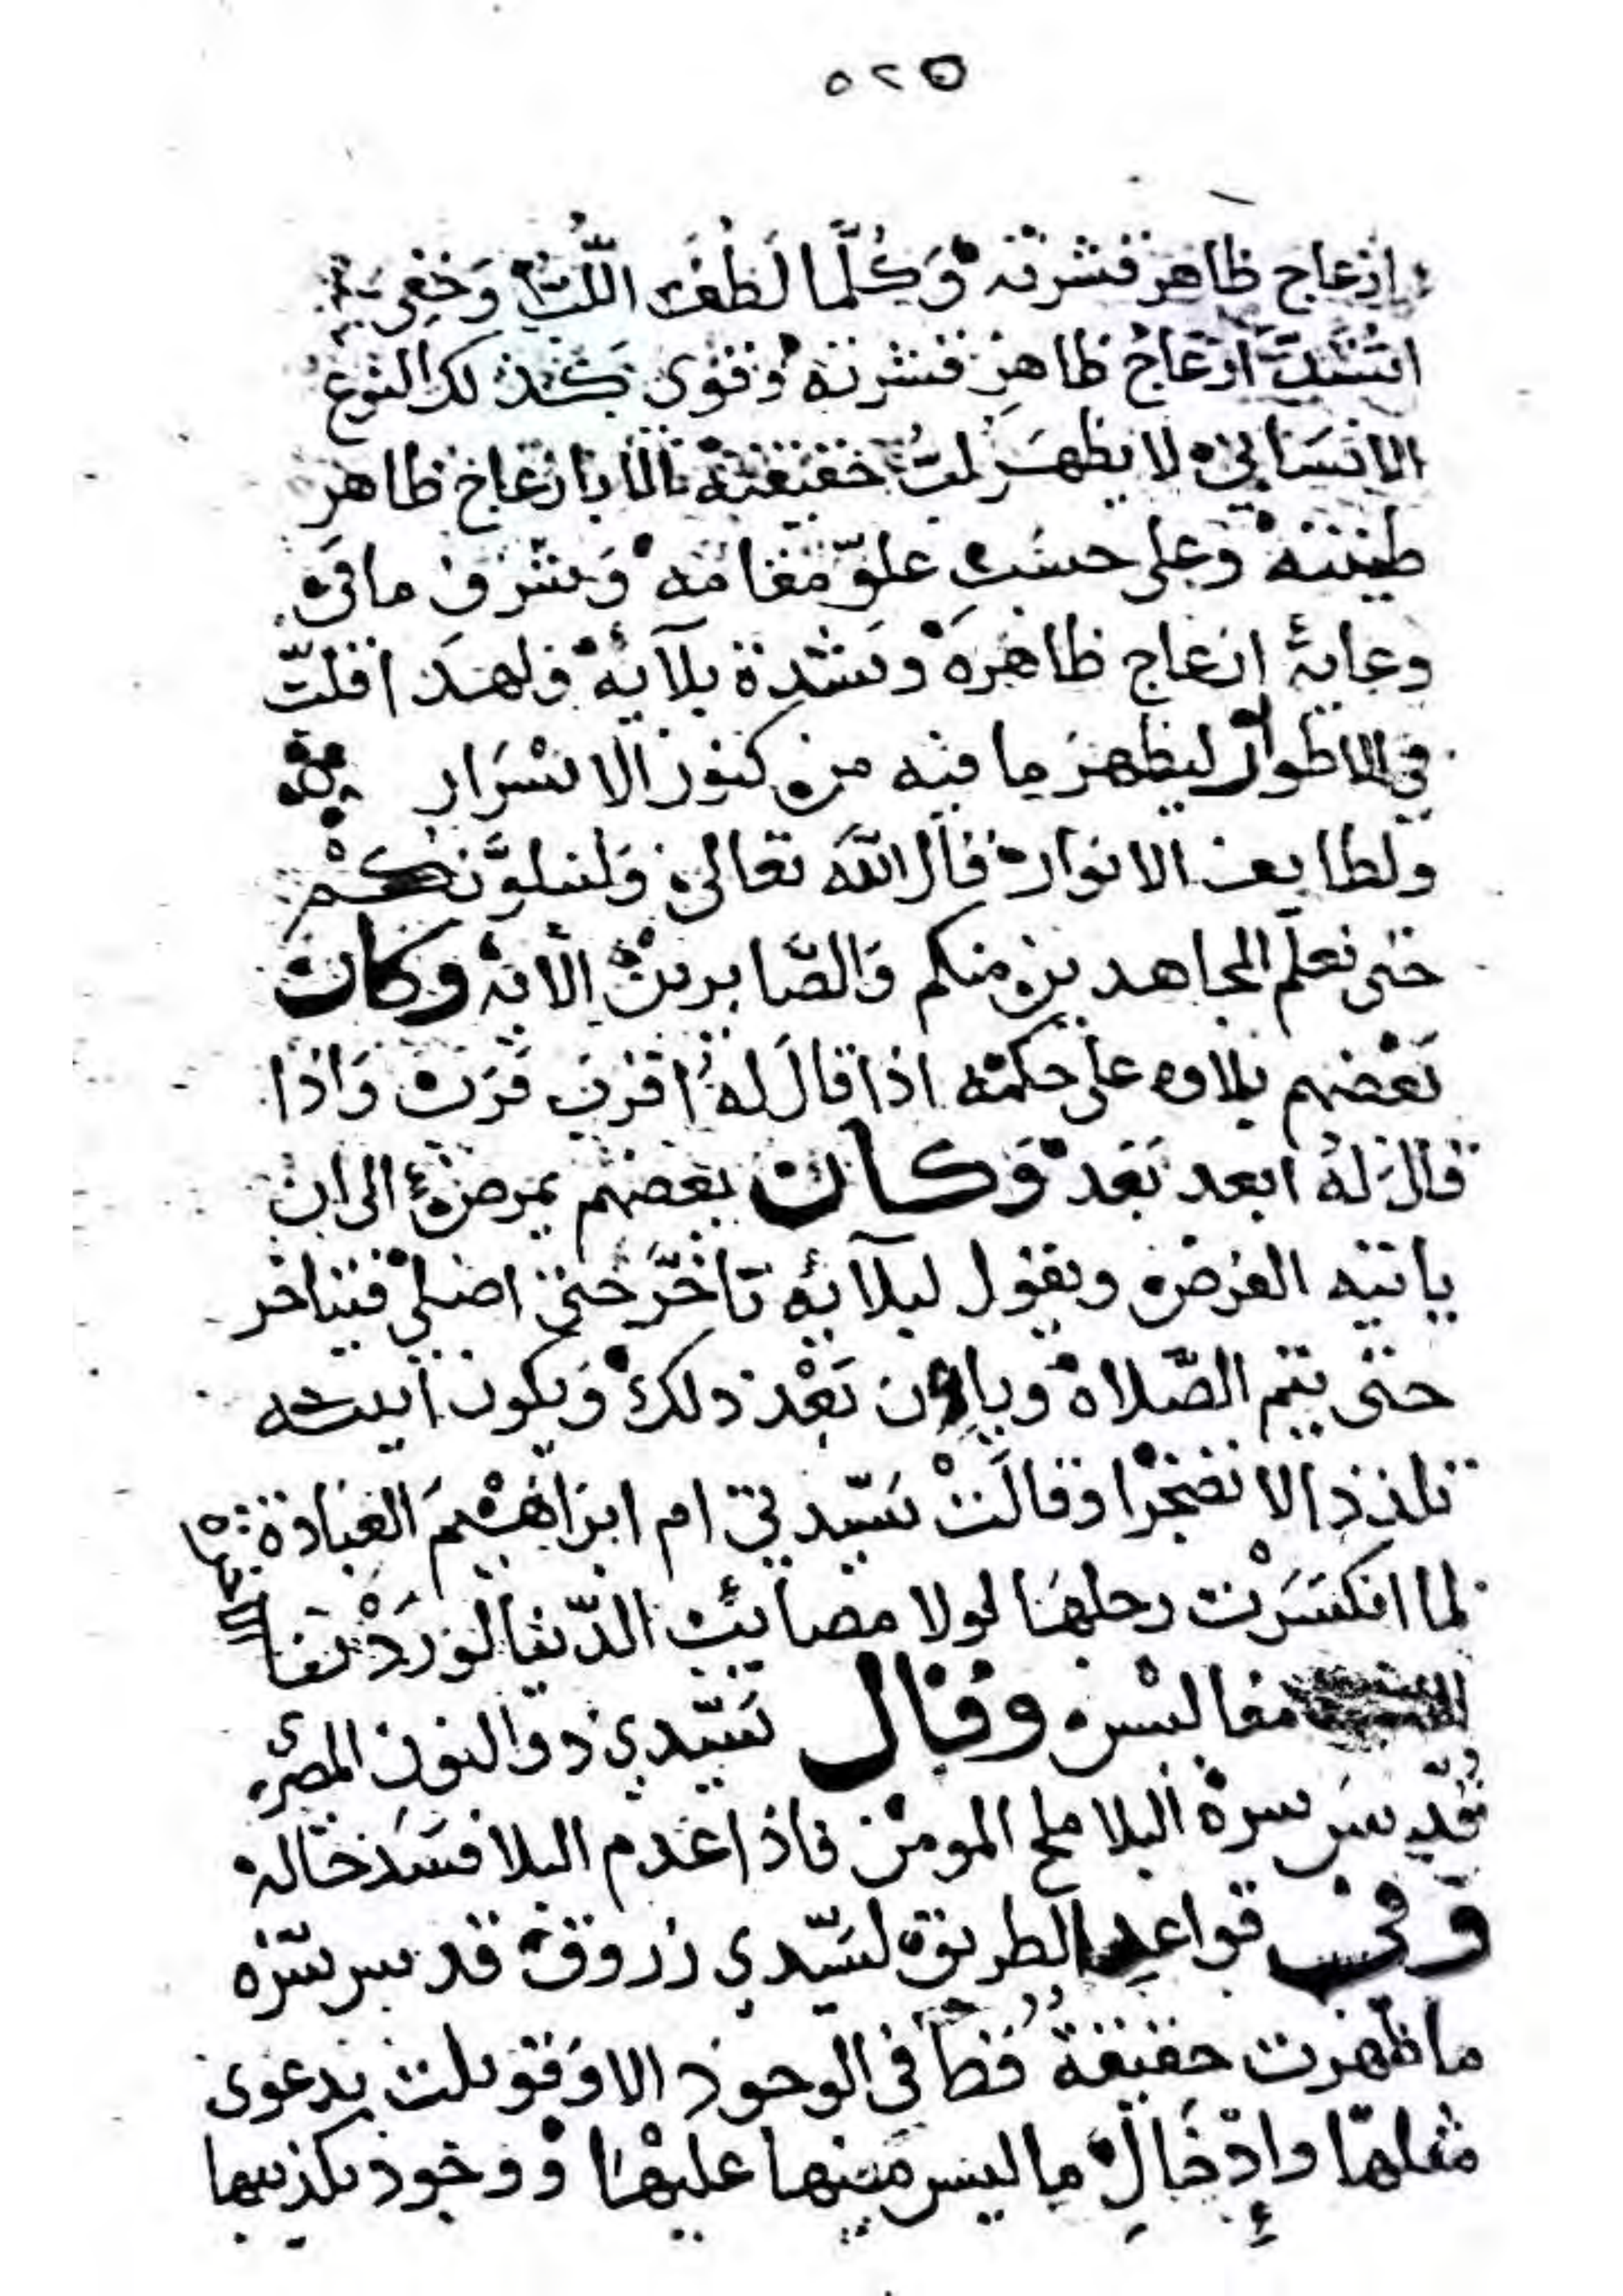 ٥٢٥
ازعاج ظاهر قشرته وَكُلَّما لَطُفَ اللُّبُّ وَخَفِيَ
اشتدَّ ازعاجُ ظاهِرِ قشرته وقوي كذلك النوع
الانسَاني لا يظهَر لبُّ حقيقته الا بازعاج ظاهر
طينته وعلى حسَبِ علوّ مقامه وَشرف ما في
وعايهِ ازعاج ظاهره وشدة بلآيه ولهذا قلّت
في الاطوار ليظهرَ ما فيه من كنوز الاسْرَار
ولطايف الانوار قال اللَه تعالى وَلنبلوَّنكُمْ
حتى نعلَم المجاهدين منكم وَالصّابرين الآية وكان
بَعْضهم بلاوه على حكمه اذا قالَ له اقرب قرَب وَاذا
قالَ لهُ ابعد بَعد وَكان بعضهم يمرض الى ان
ياتيه الفرض ويقول لبلآئه تأخَّر حتى اصلي فيتاخر
حتى يتم الصّلاة وياذن بَعْد ذلك وَيكون انينه
تلذذا لا تضجرا وقالَتْ سَيّدتي ام ابرَاهيْمَ العبادة
لما انكسَرَت رجلهَا لولا مصائب الدّنيا لوَرَدْنا
القيامة
مفاليس وقال سَيّدي ذو النون المصري
قُدّس سره البلا ملح المومن فاذا عدم البلا فسَد حاله
وَفي قواعِد الطريق لسَيّدي زروق قدس سرّه
ما ظهرت حقيقةٌ قط في الوجود الا وَقوبلت بدعوى
مثلهَا وَإدْخَالِ ما ليس منها عليهَا ووجود تكذيبها